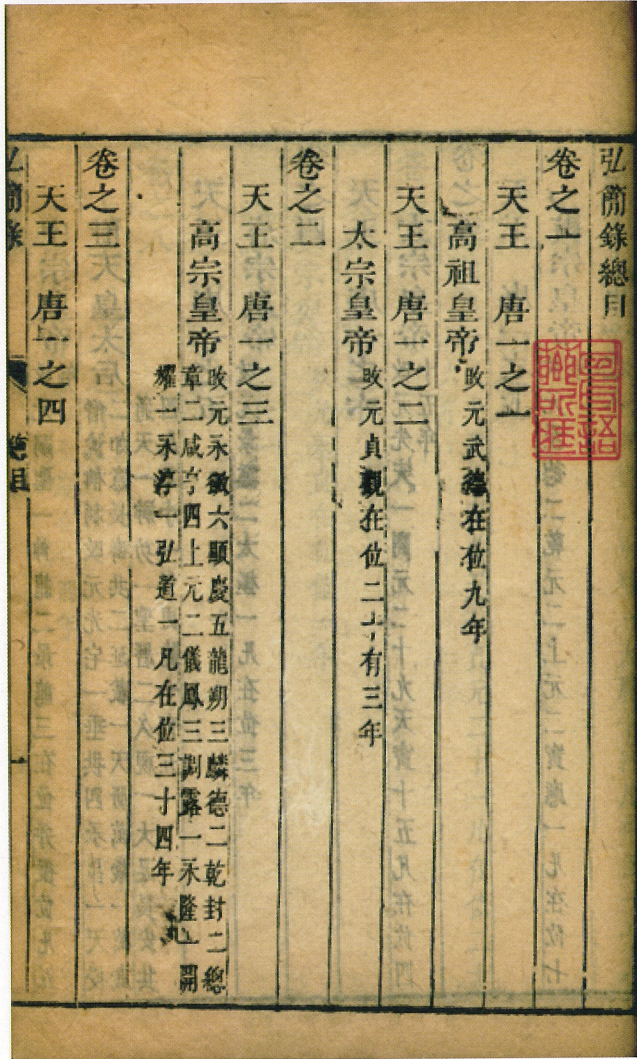 弘簡錄總目
卷之一
天王　唐一之一
高祖皇帝　改元武德在位九年
天王　唐一之二
太宗皇帝　改元貞觀在位二十有三年
卷之二
天王　唐一之三
高宗皇帝　改元永徽六顯慶五龍朔三麟德二乾封二總
章二咸亨四上元二儀鳳三調露一永隆一開
耀一永淳一弘道一凡在位三十四年
卷之三
天王　唐一之四
弘簡錄　總目　一